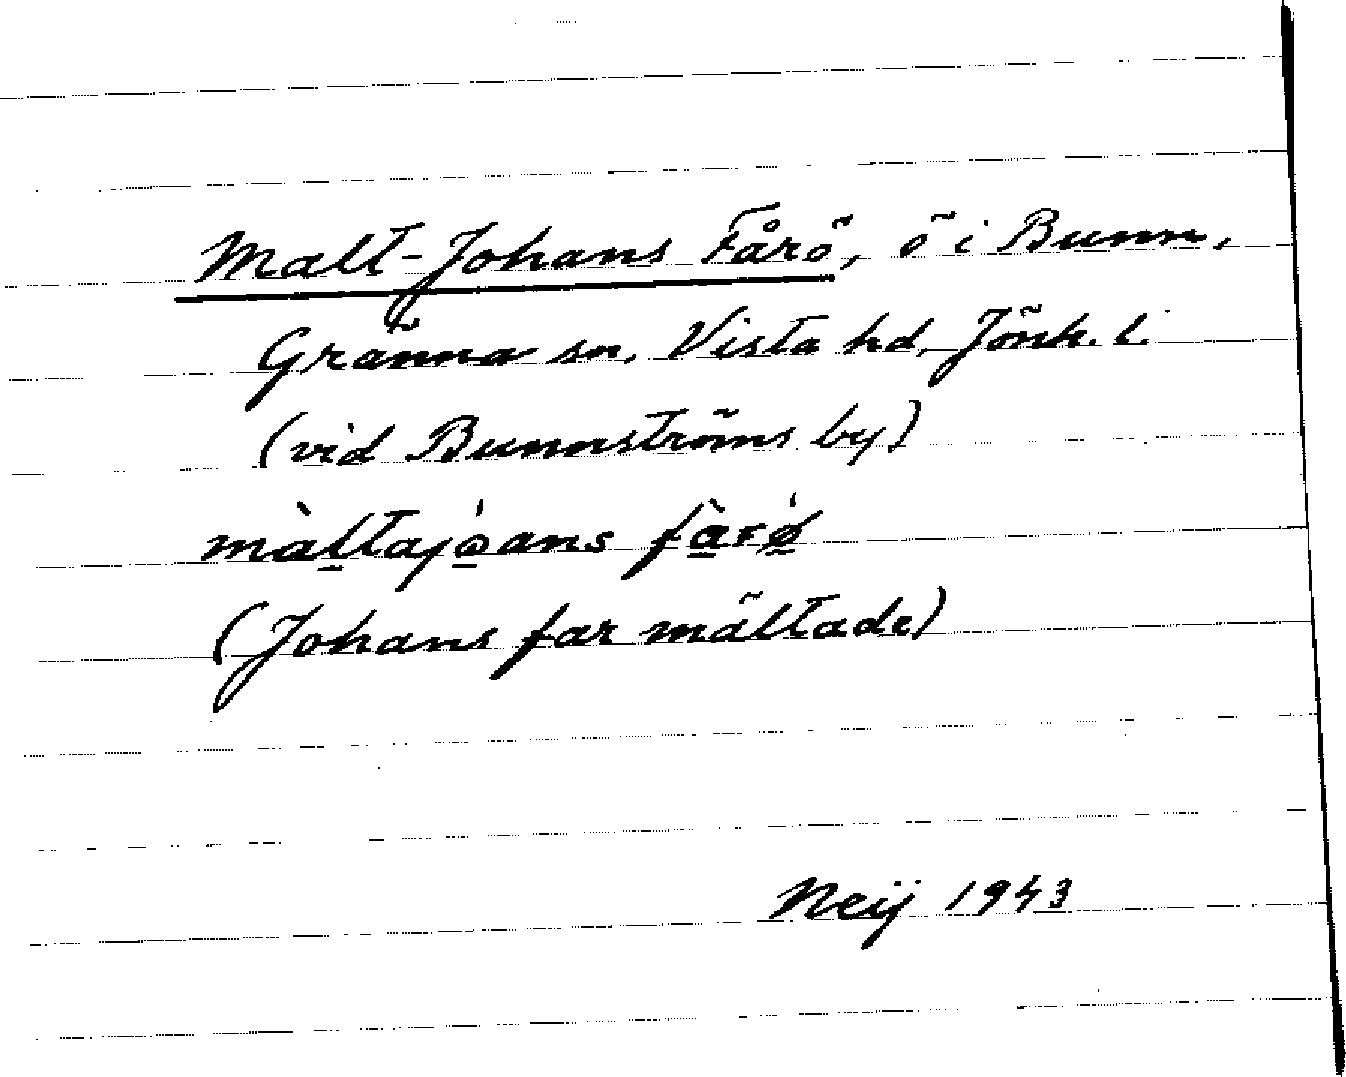 Malt-Johans Fårö, ö i Bunn,
Gränna sn, Vista hd, Jönk. l.
(vid Bunnströms by)
màltajó̠ans fà̠rǿ̠
(Johans far mältade)
Neij 1943